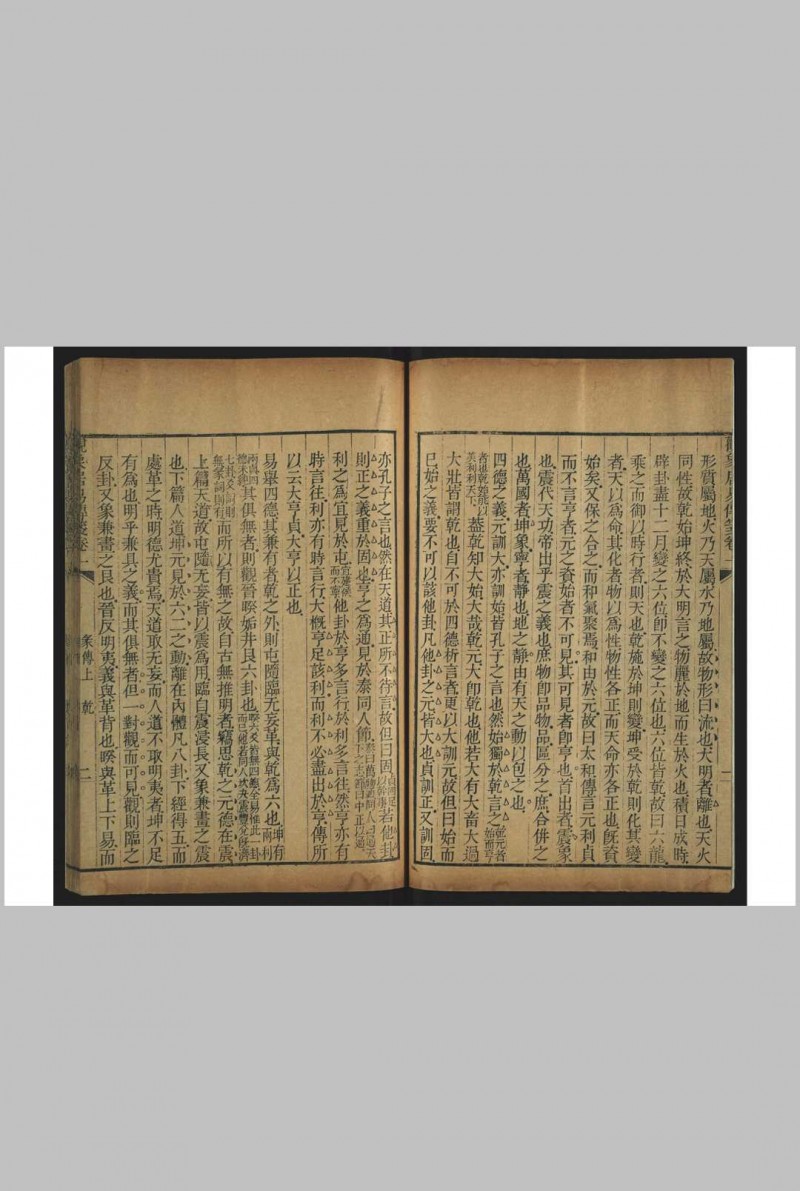 形質屬地火乃天屬水乃地屬故物形曰流也大明者離也天火
同性故乾始坤終於大明言之物麗於地而生於火也積日成時
辟卦盡十二月變之六位卽不變之六位也六位皆乾故曰六龍
乘之而御以時行者則天也乾施於坤則變坤受於乾則化其變
者天以爲命其化者物以爲性物性各正而天命亦各正也旣資
始矣又保之合之而和氣聚焉和由於元故曰太和傳言元利貞
而不言亨者元之資始者不可見其可見者卽亨也首出者震象
也震代天功帝出乎震之義也庶物卽品物品區分之庶合併之
也萬國者坤象寧者靜也地之靜由有天之動以包之也
四德之義元訓大亦訓始皆孔子之言也然始獨於乾言之乾元者始而亨
者也乾始能以美利利天下蓋乾知大始大哉乾元大卽乾也他若大有大畜大過
大壯皆謂乾也自不可於四德析言者更以大訓元故但曰始而
已始之義要不可以該他卦凡他卦之元皆大也貞訓正又訓固
亦孔子之言也然在天道其正所不待言故但曰固貞固足以幹事若他卦
則正之義重於固也亨之爲通見於泰同人節
利之爲宜見於屯宜建侯而不寧他卦於亨多言行於利多言往然亨亦有
時言往利亦有時言行大概亨足該利而利不必盡出於亨傳所
以云大亨貞大亨以正也
易舉四德其兼有者乾之外則屯隨臨无妄革與乾爲六也坤有兩利
其俱無者則觀晉睽姤井艮六卦也
而所以有無之故自古無推明者竊思乾之元德在震
上篇天道故屯隨无妄皆以震爲用臨自震浸長又象兼畫之震
也下篇人道坤元見於六二之動離在內體凡八卦下經得五而
處革之時明德尤貴焉天道取无妄而人道不取明夷者坤不足
有爲也明乎兼具之義而其俱無者但一對觀而可見觀則臨之
反卦又象兼畫之艮也晉反明夷義與革背也睽與革上下易而
彖傳上 乾 二